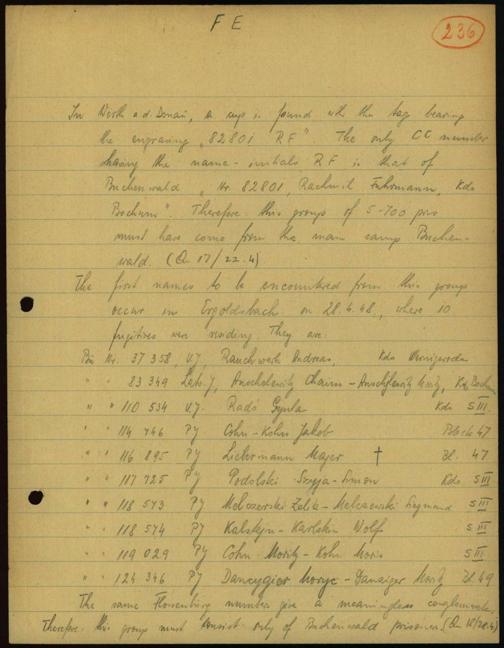 F E
236
In Wörth a d. Donau, a rags is found with the tag bearing
the engraving „82801 R F" The only CC number
having the name-initials R F is that of
Buchenwald „Nr. 82801, Rachmil Fuhrmann, Kdo
Bochum". Therefore this groups of 5-700 pris
must have come from the main camp Buchen-
wald. (Qn 17/22.4)
The first names to be encountered from this group
occur in Ergoldsbach on 28.4.48, where 10
fugitives were residing They are:
Pris Nr. 37 358, UJ, Rauchwerk Andreas, Kdo Wernigerode
" " 83 349 Lett. J, Chaim - Moritz, Kdo Bochum
" " 110 534 UJ. Radó Gyula Kdo S III
" " 114 746 PJ Cohn-Kohn Jakob Block 47
" " 116 895 PJ Liebermann Majer † Bl. 47
" " 117 725 PJ Podolski Szyja-Simon Kdo S III
" " 118 573 PJ Zelik - Siegmund S III
" " 118 574 PJ Kalstyn-Karlstein Wolf S III
" " 119 029 PJ Cohn Moritz-Kohn Moris S III
" " 124 346 PJ Dancygier Moryc - Danziger Moritz Bl 49
The same Flossenbürg numbers give a meaningless conglomerate
Therefore this group must consist only of Buchenwald prisoners. (Qn 18/28.4)